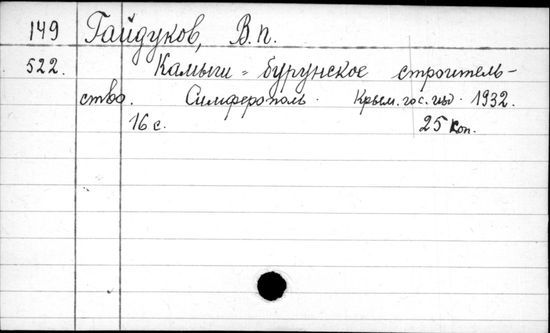 149 Гайдуков, В.П.
522. Камыш-бурунское строитель-
ство. Симферополь. Крым. гос. изд. 1932.
16 с. 25 коп.